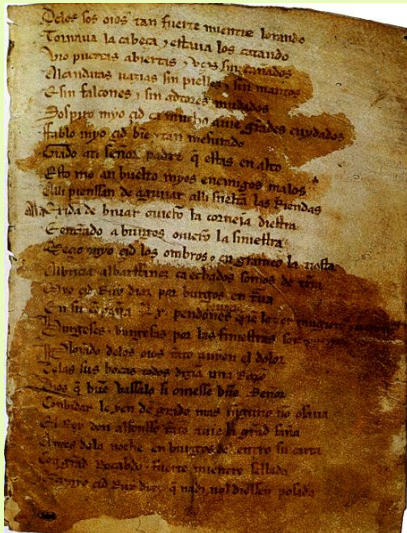 Delos sos oios tan fuerte mientre lorando
Tornaua la cabeça ⁊ estaua los catando
Vio puertas abiertas ⁊ vços sin cañados
Alcandaras uazias sin pielles ⁊ sin mantos
E sin falcones ⁊ sin adtores mudados
Sospiro myo çid ca mucho auie grãdes cuydados
Fablo myo çid bie ⁊ tan mesurado
Grado ati señor padre q̃ estas en alto
Esto me an buelto myos enemigos malos
Alli pienssan de aguiiar alli sueltã las Riendas
Ala exida de biuar ouierõ la corneia diestra
E entrãdo a burgos ouierõ la siniestra
Meçio myo çid los ombros ⁊ en grameo la tiesta
Albricia albarffanez ca echados somos de tierra
Myo çid Ruy diaz por burgos en
En su compaña .Lx. pendones
Burgeses ⁊ burgesas por las finiestras
Plorando delos oios tãto auyen el dolor
Delas sus bocas todos dizia una Razõ
Dios q̃ buẽ vassalo si ouiesse buẽ Señor
Conbidar le yen de grado mas ninguno no osaua
El Rey don alfonsso tãto auie la grãd saña
Antes dela noche en burgos del entro su carta
Con grãd Recabdo ⁊ fuerte mientre sellada
Que a myo çid Ruy diaz q̃ nadi nol diessen posada